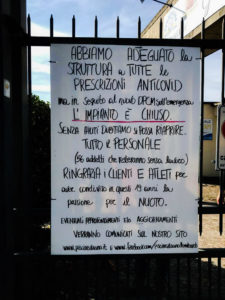 ABBIAMO ADEGUATO la
STRUTTURA a TUTTE le
PRESCRIZIONI ANTICOVID
ma, in seguito al nuovo DPCM sull'emergenza
L'IMPIANTO È CHIUSO.
SENZA AIUTI DUBITIAMO si POSSA RIAPRIRE.
TUTTO il PERSONALE
(36 addetti che resteranno senza lavoro)
RINGRAZIA i CLIENTI E ATLETI per
aver condiviso in questi 19 anni la
passione per il NUOTO.
EVENTUALI APPROFONDIMENTI E/O AGGIORNAMENTI
VERRANNO COMUNICATI SUL NOSTRO SITO